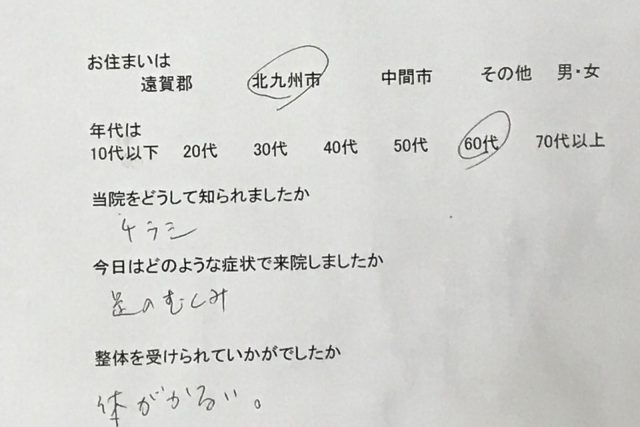 お住まいは
遠賀郡 北九州市 中間市 その他 男・女
年代は
10代以下 20代 30代 40代 50代 60代 70代以上
当院をどうして知られましたか
チラシ
今日はどのような症状で来院しましたか
足のむくみ
整体を受けられていかがでしたか
体がかるい。